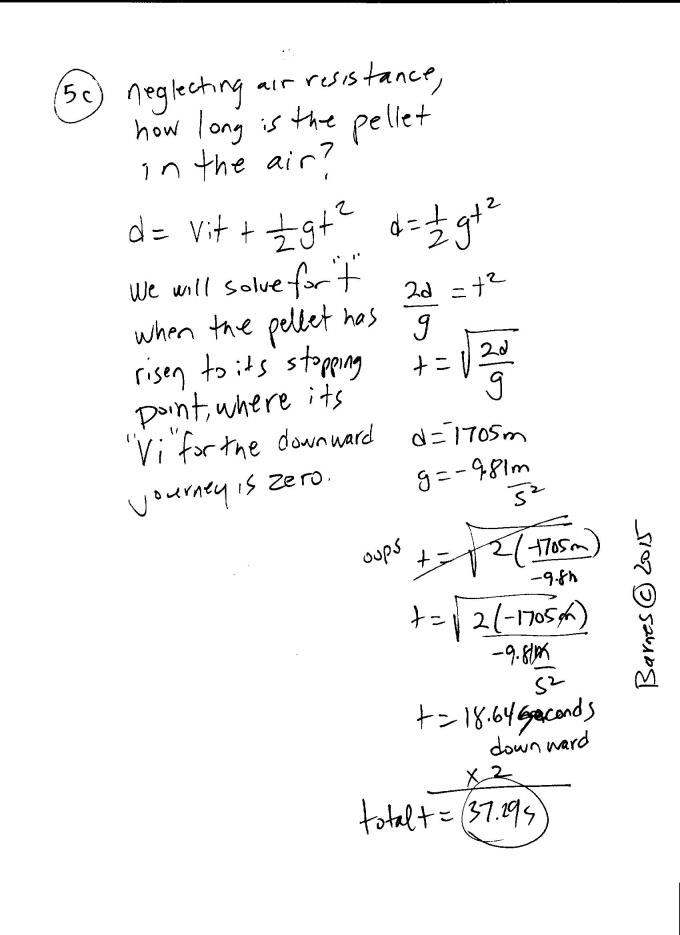 5c neglecting air resistance,
how long is the pellet
in the air?
d = Vit + 1/2 gt²
We will solve for "t"
when the pellet has
risen to its stopping
point, where its
"Vi" for the downward
journey is zero.
d = 1/2 gt²
2d/g = t²
t = √(2d/g)
d = -1705m
g = -9.81m/s²
oops t = √(2(-1705m)/-9.8
t = √(2(-1705m)/-9.81m/s²)
t = 18.64 seconds
downward
x 2
total t = 37.29s
Barnes © 2015